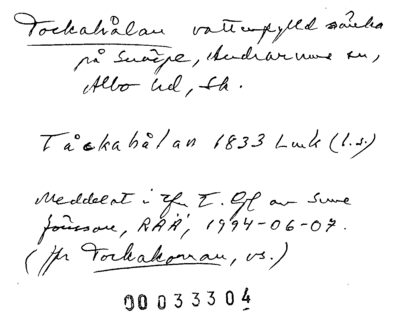 Tockahålan vattenfylld sänka
på Svarpe, Andrarums sn,
Albo hd, Sk.
Tåckahålan 1833 Lmk (l.s.)
Meddelat i tfn T. Gfl av Sune
Jönsson, RAÄ, 1994-06-07.
(Jfr Tockakorran, vs.)
0033304